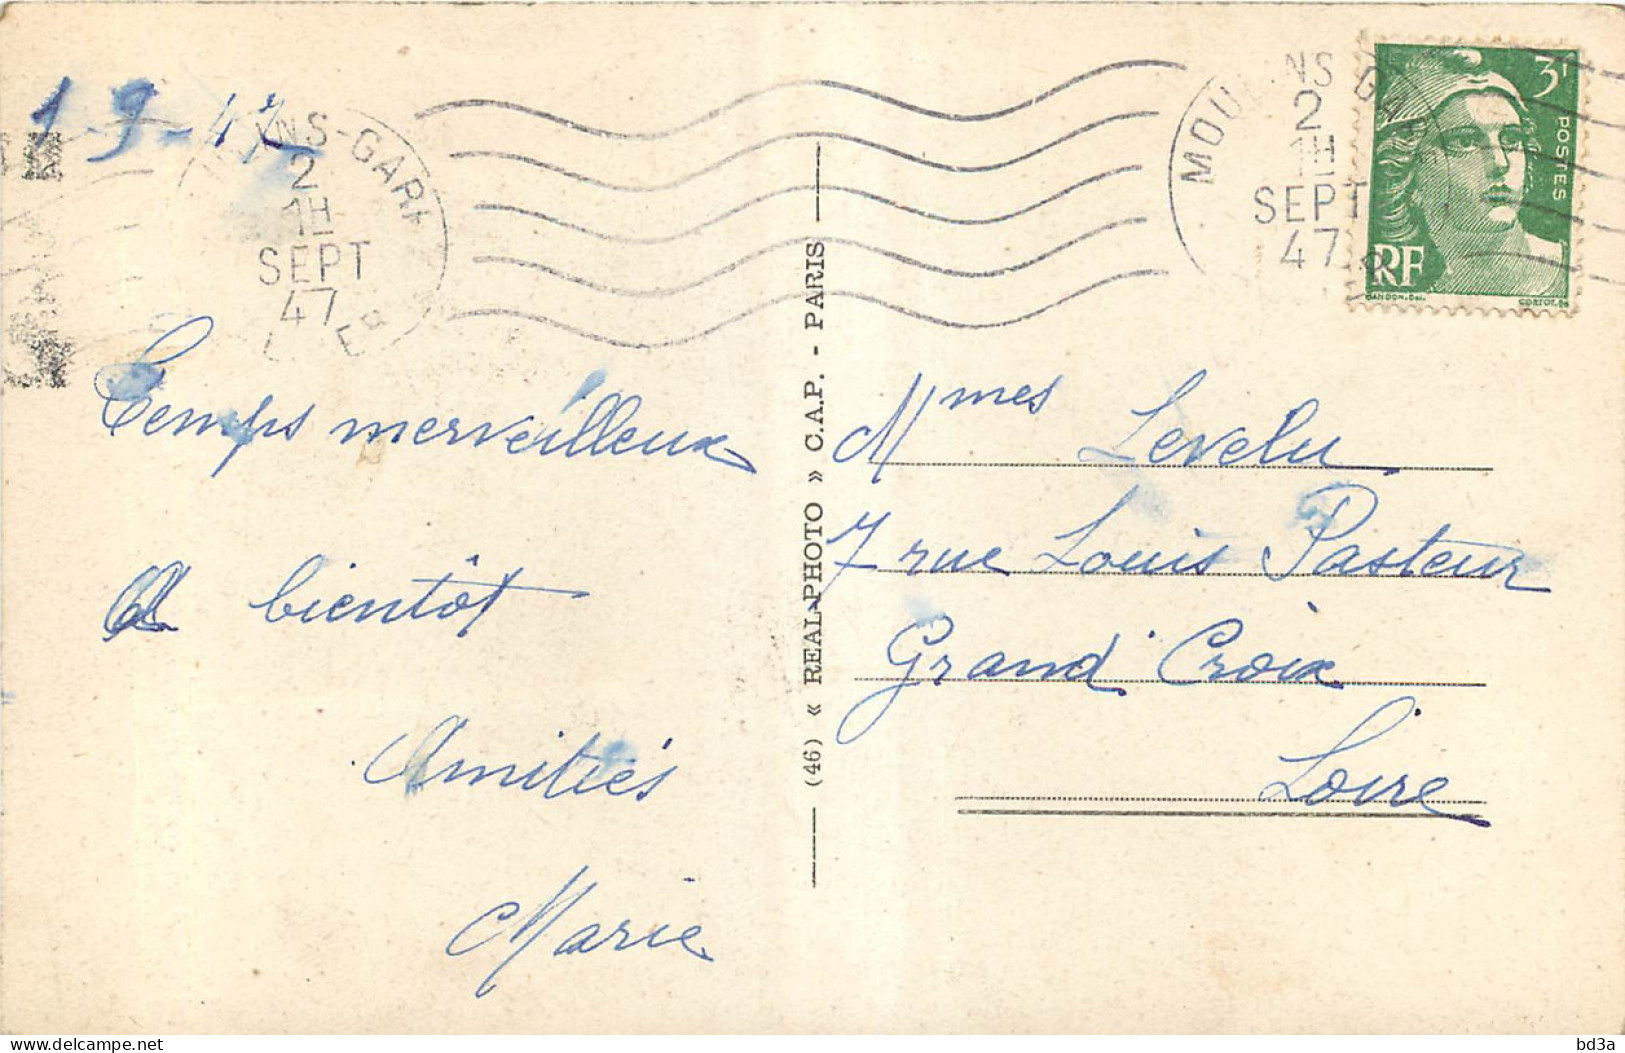 1-9-47
MOULINS-GARE
2
1H
SEPT
47
ALLIER
MOULINS-GARE
2
1H
SEPT
47
3F
POSTES
RF
GANDON.Del.
CORTOT.Sc
Temps merveilleux
A bientôt
Amitiés
Marie
(46) « REAL-PHOTO » C.A.P. - PARIS
Mmes Levelu
7 rue Louis Pasteur
Grand Croix
Loire
bd3a